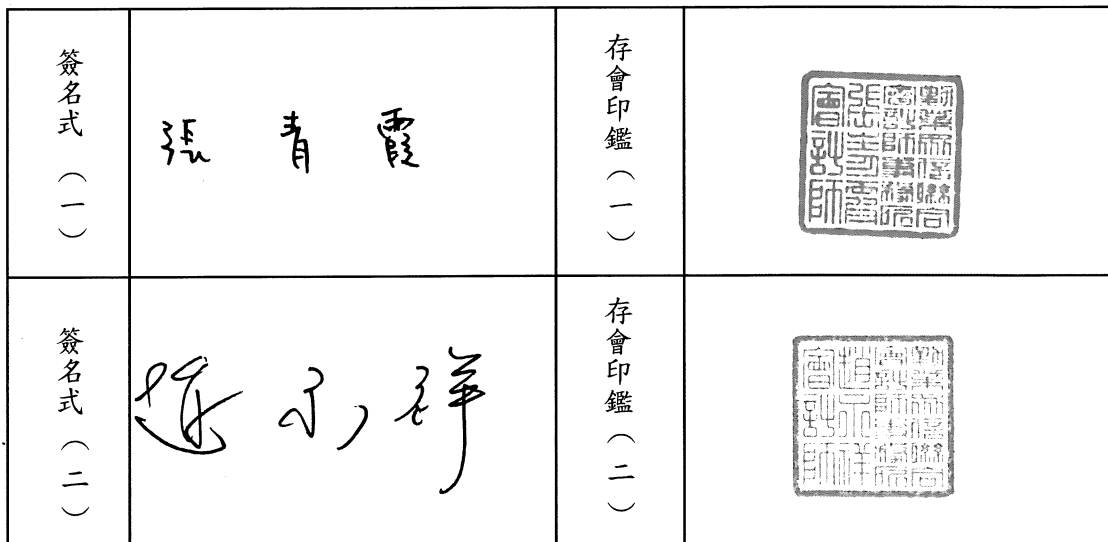 簽名式（一）
張青霞
存會印鑑（一）
勤業眾信聯合
會計師事務所
張青霞
會計師
簽名式（二）
趙永祥
存會印鑑（二）
勤業眾信聯合
會計師事務所
趙永祥
會計師